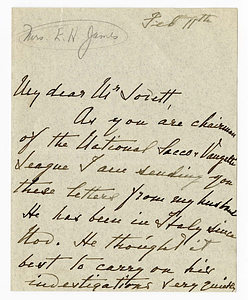 Mrs. E. H. James
Feb 11th
My dear Mr Lovett,
As you are chairman
of the National Sacco-Vanzetti
League I am sending you
these letters from my husband
He has been in Italy since
Nov. He thought it
best to carry on his
investigations very quietly